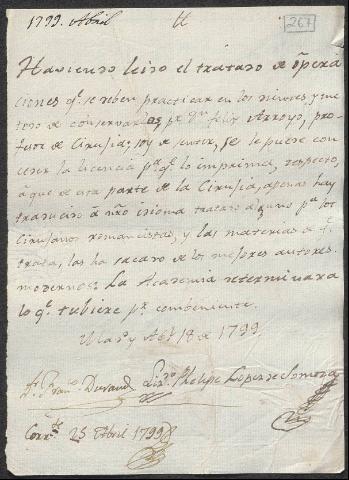 1799. Abril
267
Haviendo leido el tratado de opera
ciones q.e se deben practicar en los dientes, y me
todo de conservarlas p.r d.n Felix Arroyo, pro-
fesor de Cirugia; soy de sentir, se le puede con
ceder la licencia p.a q.e lo imprima, respecto,
á que de esta parte de la Cirugia, apenas hay
traducido á nro idioma tratado alguno p.a los
Cirujanos romancistas, y las materias de q.e
trata, las ha sacado de los mejores autores
modernos: La Academia determinara
lo q.e tubiere p.r combeniente.
Madrid y Ab.l 18 de 1799
D.r Fran.co Durand Liz.do Phelipe Lopez de Somoza
Corr.te 25 Abril 1799